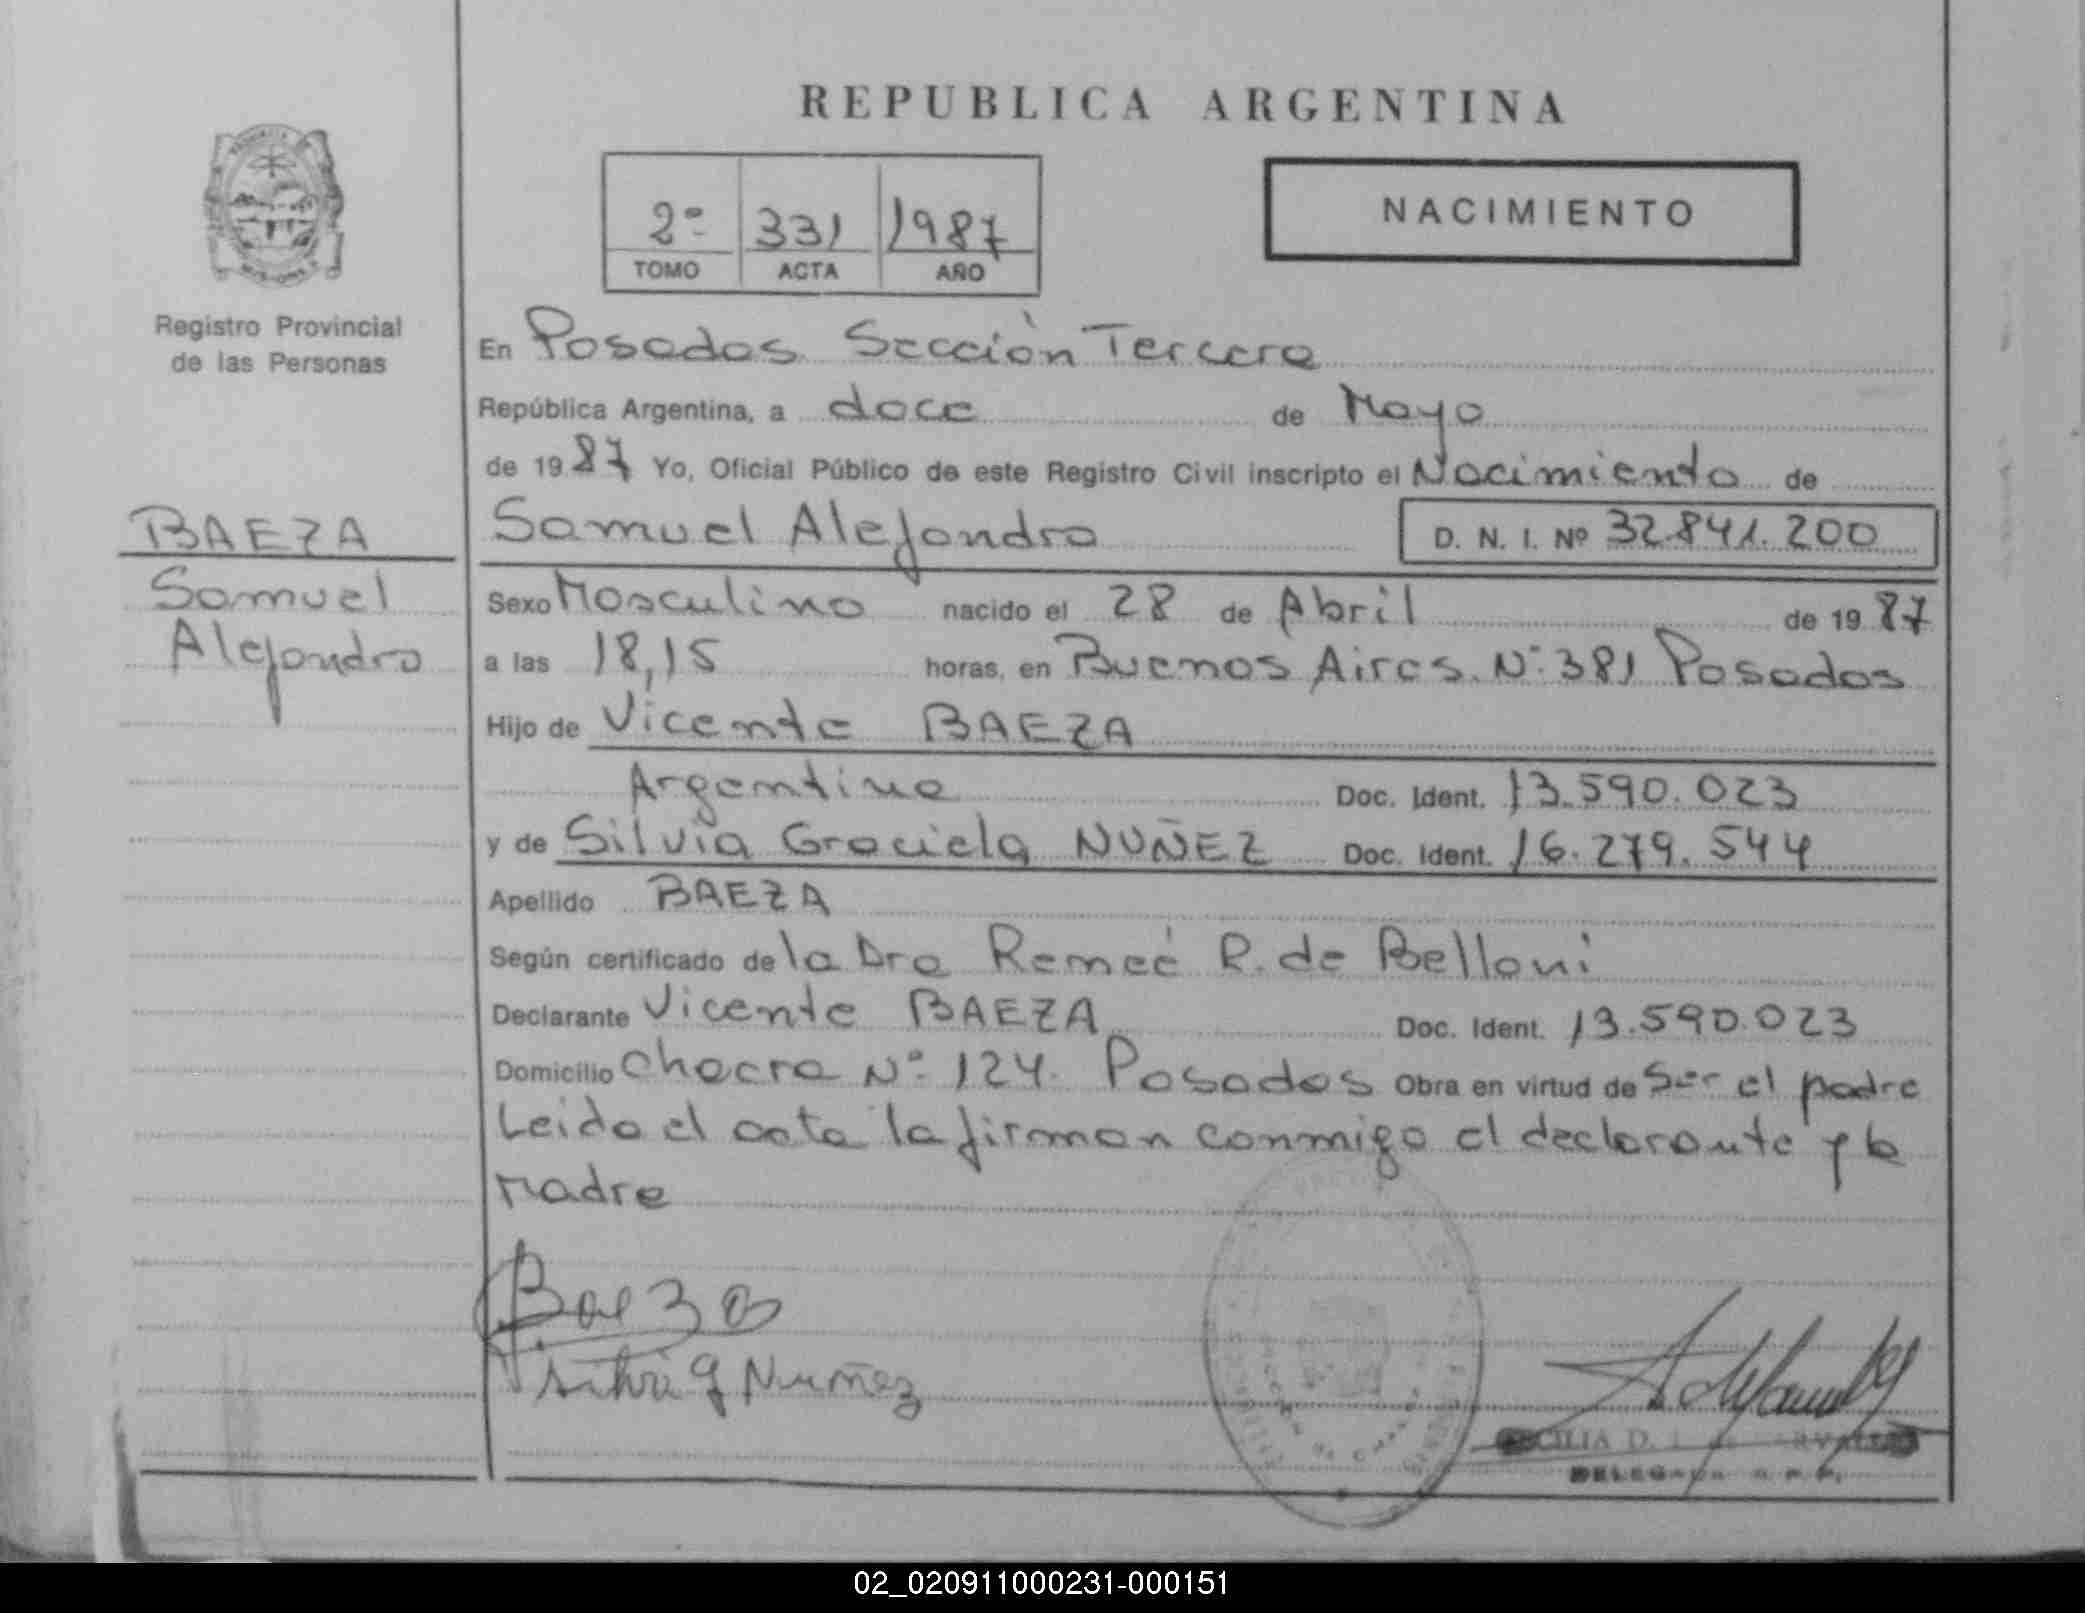 REPUBLICA ARGENTINA
2º 331 1987
TOMO ACTA AÑO
NACIMIENTO
Registro Provincial
de las Personas
BAEZA
Samuel
Alejandro
En Posadas Sección Tercera
República Argentina, a doce de Mayo
de 1987 Yo, Oficial Público de este Registro Civil inscripto el Nacimiento de
Samuel Alejandro D. N. I. Nº 32.841.200
Sexo Masculino nacido el 28 de Abril de 1987
a las 18,15 horas, en Buenos Aires. Nº 381 Posadas
Hijo de Vicente BAEZA
Argentina Doc. Ident. 13.590.023
y de Silvia Graciela NUÑEZ Doc. Ident. 16.279.544
Apellido BAEZA
Según certificado de la Dra Remeé R. de Belloni
Declarante Vicente BAEZA Doc. Ident. 13.590.023
Domicilio Chacra Nº 124. Posadas Obra en virtud de Ser el padre
Leida el acta la firman conmigo el declarante y la
Madre
Baeza
Silvia g Nuñez
DELEGADA
02_020911000231-000151